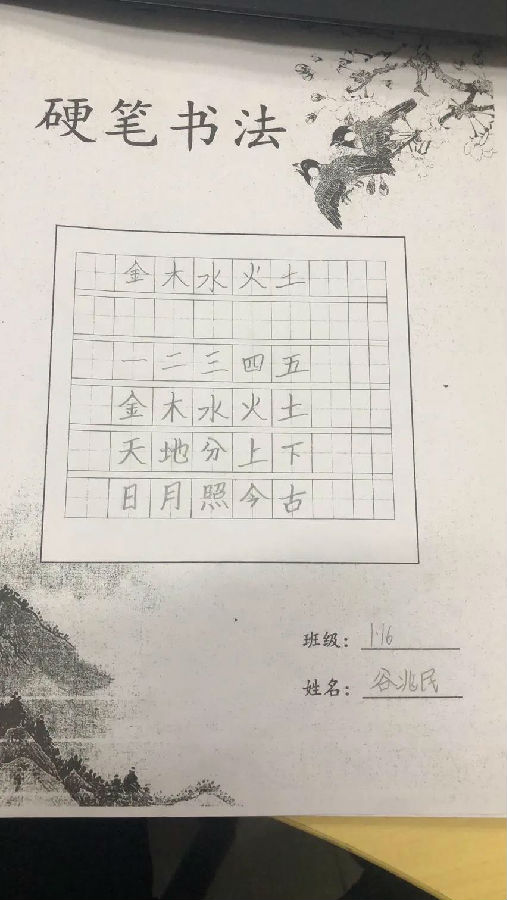 硬笔书法
金木水火土
一二三四五
金木水火土
天地分上下
日月照今古
班级：1.16
姓名：谷兆民